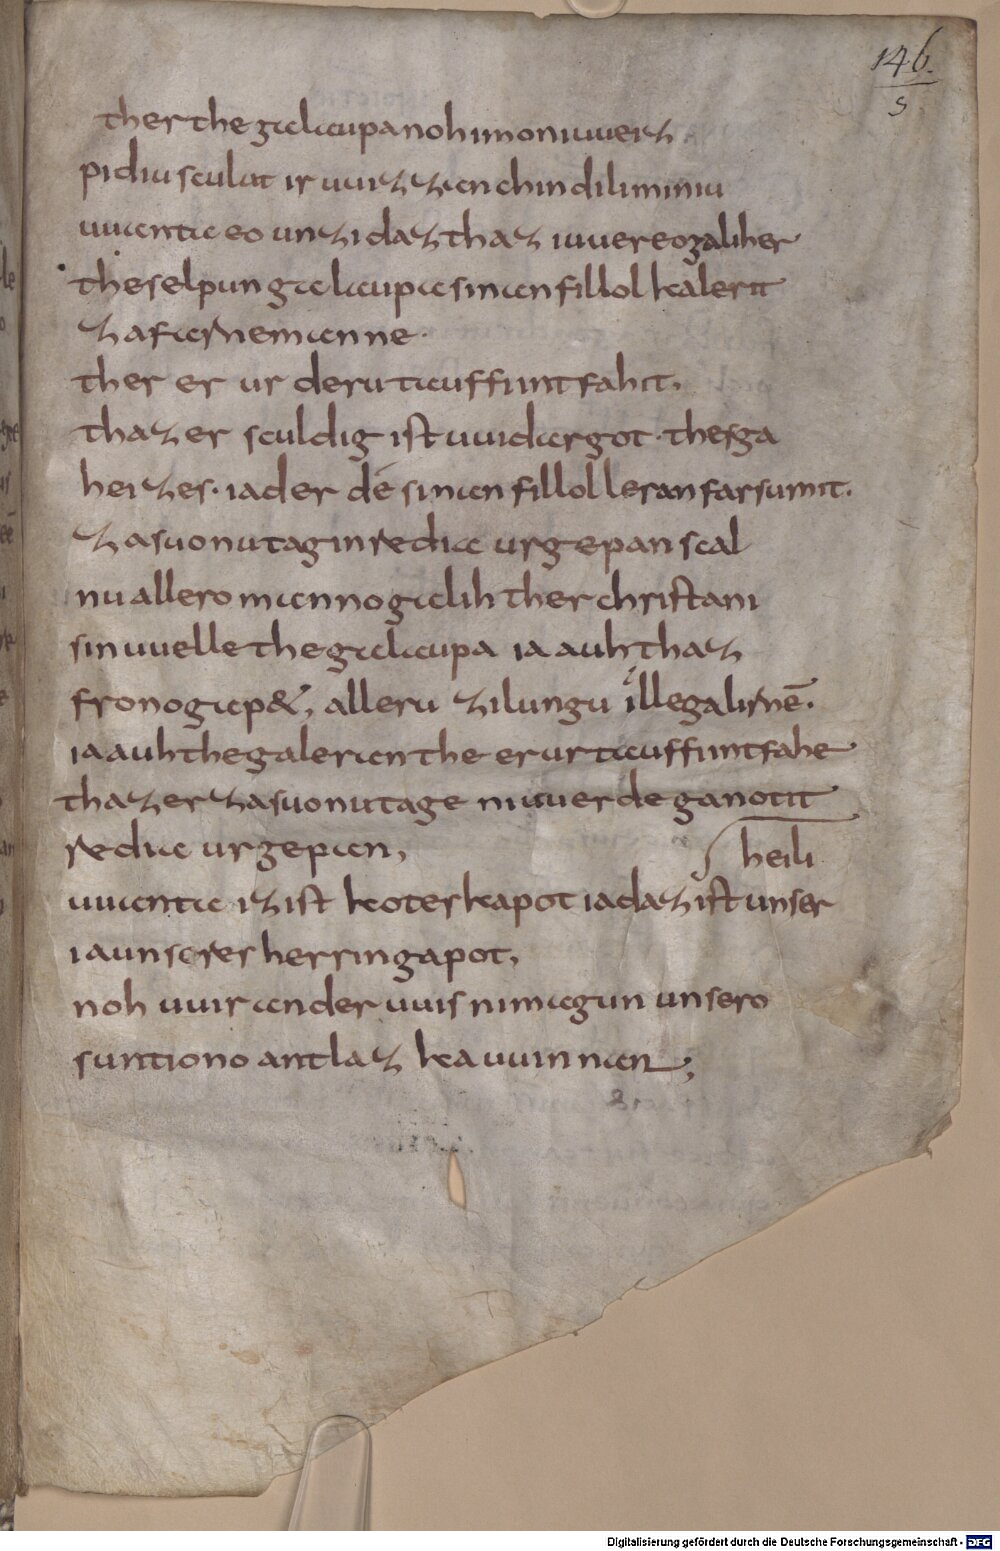 146.
s
ther the galaupa noh imo ni uueiz
pidiu sculut ir uuizzan chindili miniu
uuanta eo unzi daz thaz iuuer eogaliher
the selpun galaupa sinan fillol kalerit
za farnemanne.
ther er ur deru taufi intfahit,
thaz er sculdig ist uuidar got. thes ga
heizes. ia der de sinan fillol leran farsumit.
za suonutagin redia urgepan scal
nu allero manno galih ther christani
sin uuelle the galaupa ia auh thaz
frono gap&, alleru zilungu ille galirnen.
ia auh the galeran the er ur taufi intfahe
thaz er za suonutage ni uuerde ganotit
redia urgepan,
heili
uuanta iz ist kotes kapot ia daz ist unser
ia unseres herrin gapot,
noh uuir andar uuis ni magun unsero
suntiono antlaz kauuinnan;
Digitalisierung gefördert durch die Deutsche Forschungsgemeinschaft - DFG